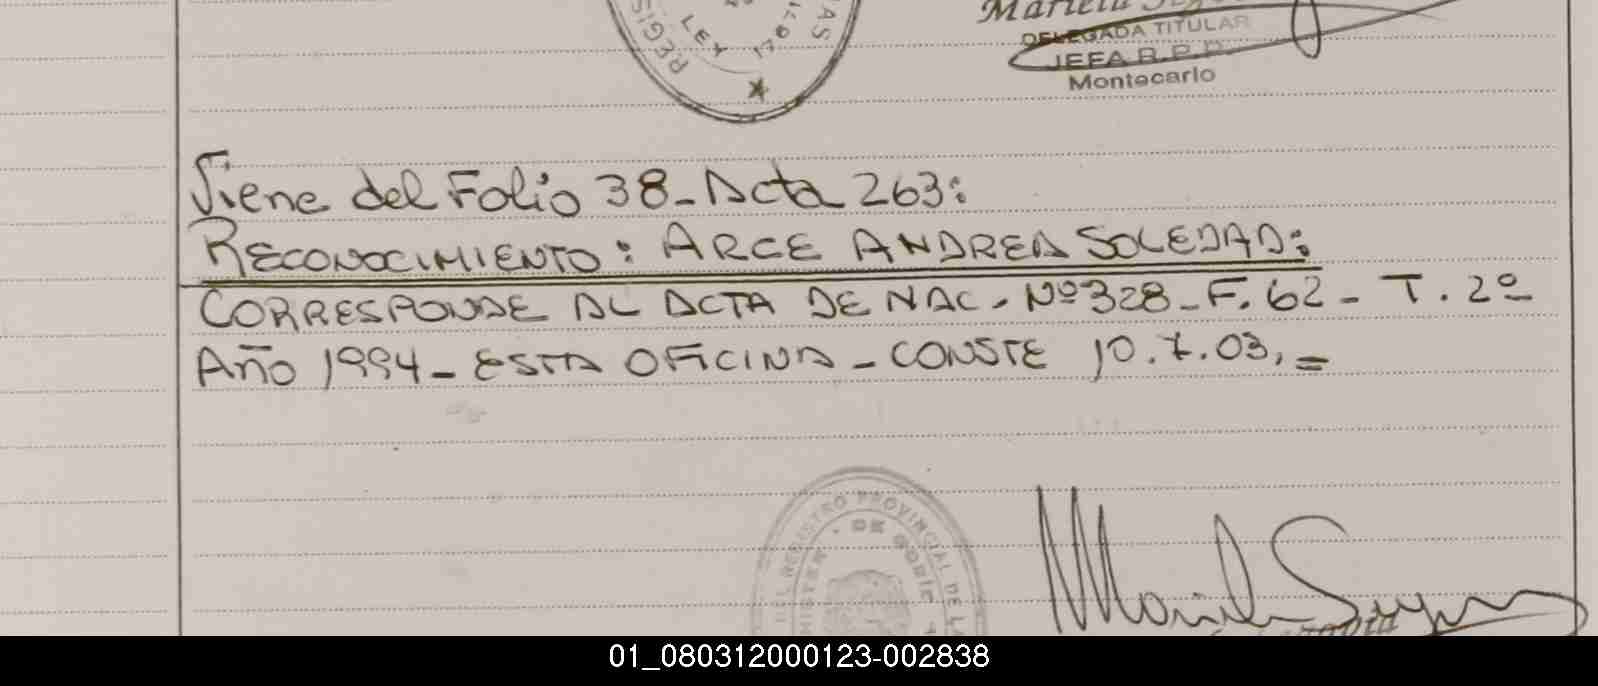 REGIS
LEY
DELEGADA TITULAR
JEFA R.P.P.
Montecarlo
Viene del Folio 38-Acta 263:
RECONOCIMIENTO: ARCE ANDREA SOLEDAD:
CORRESPONDE AL ACTA DE NAC. Nº328-F.62- T. 2º
Año 1994- ESTA OFICINA - CONSTE 10.7.03.=
DEL REGISTRO PROVINCIAL DE LA
01_080312000123-002838